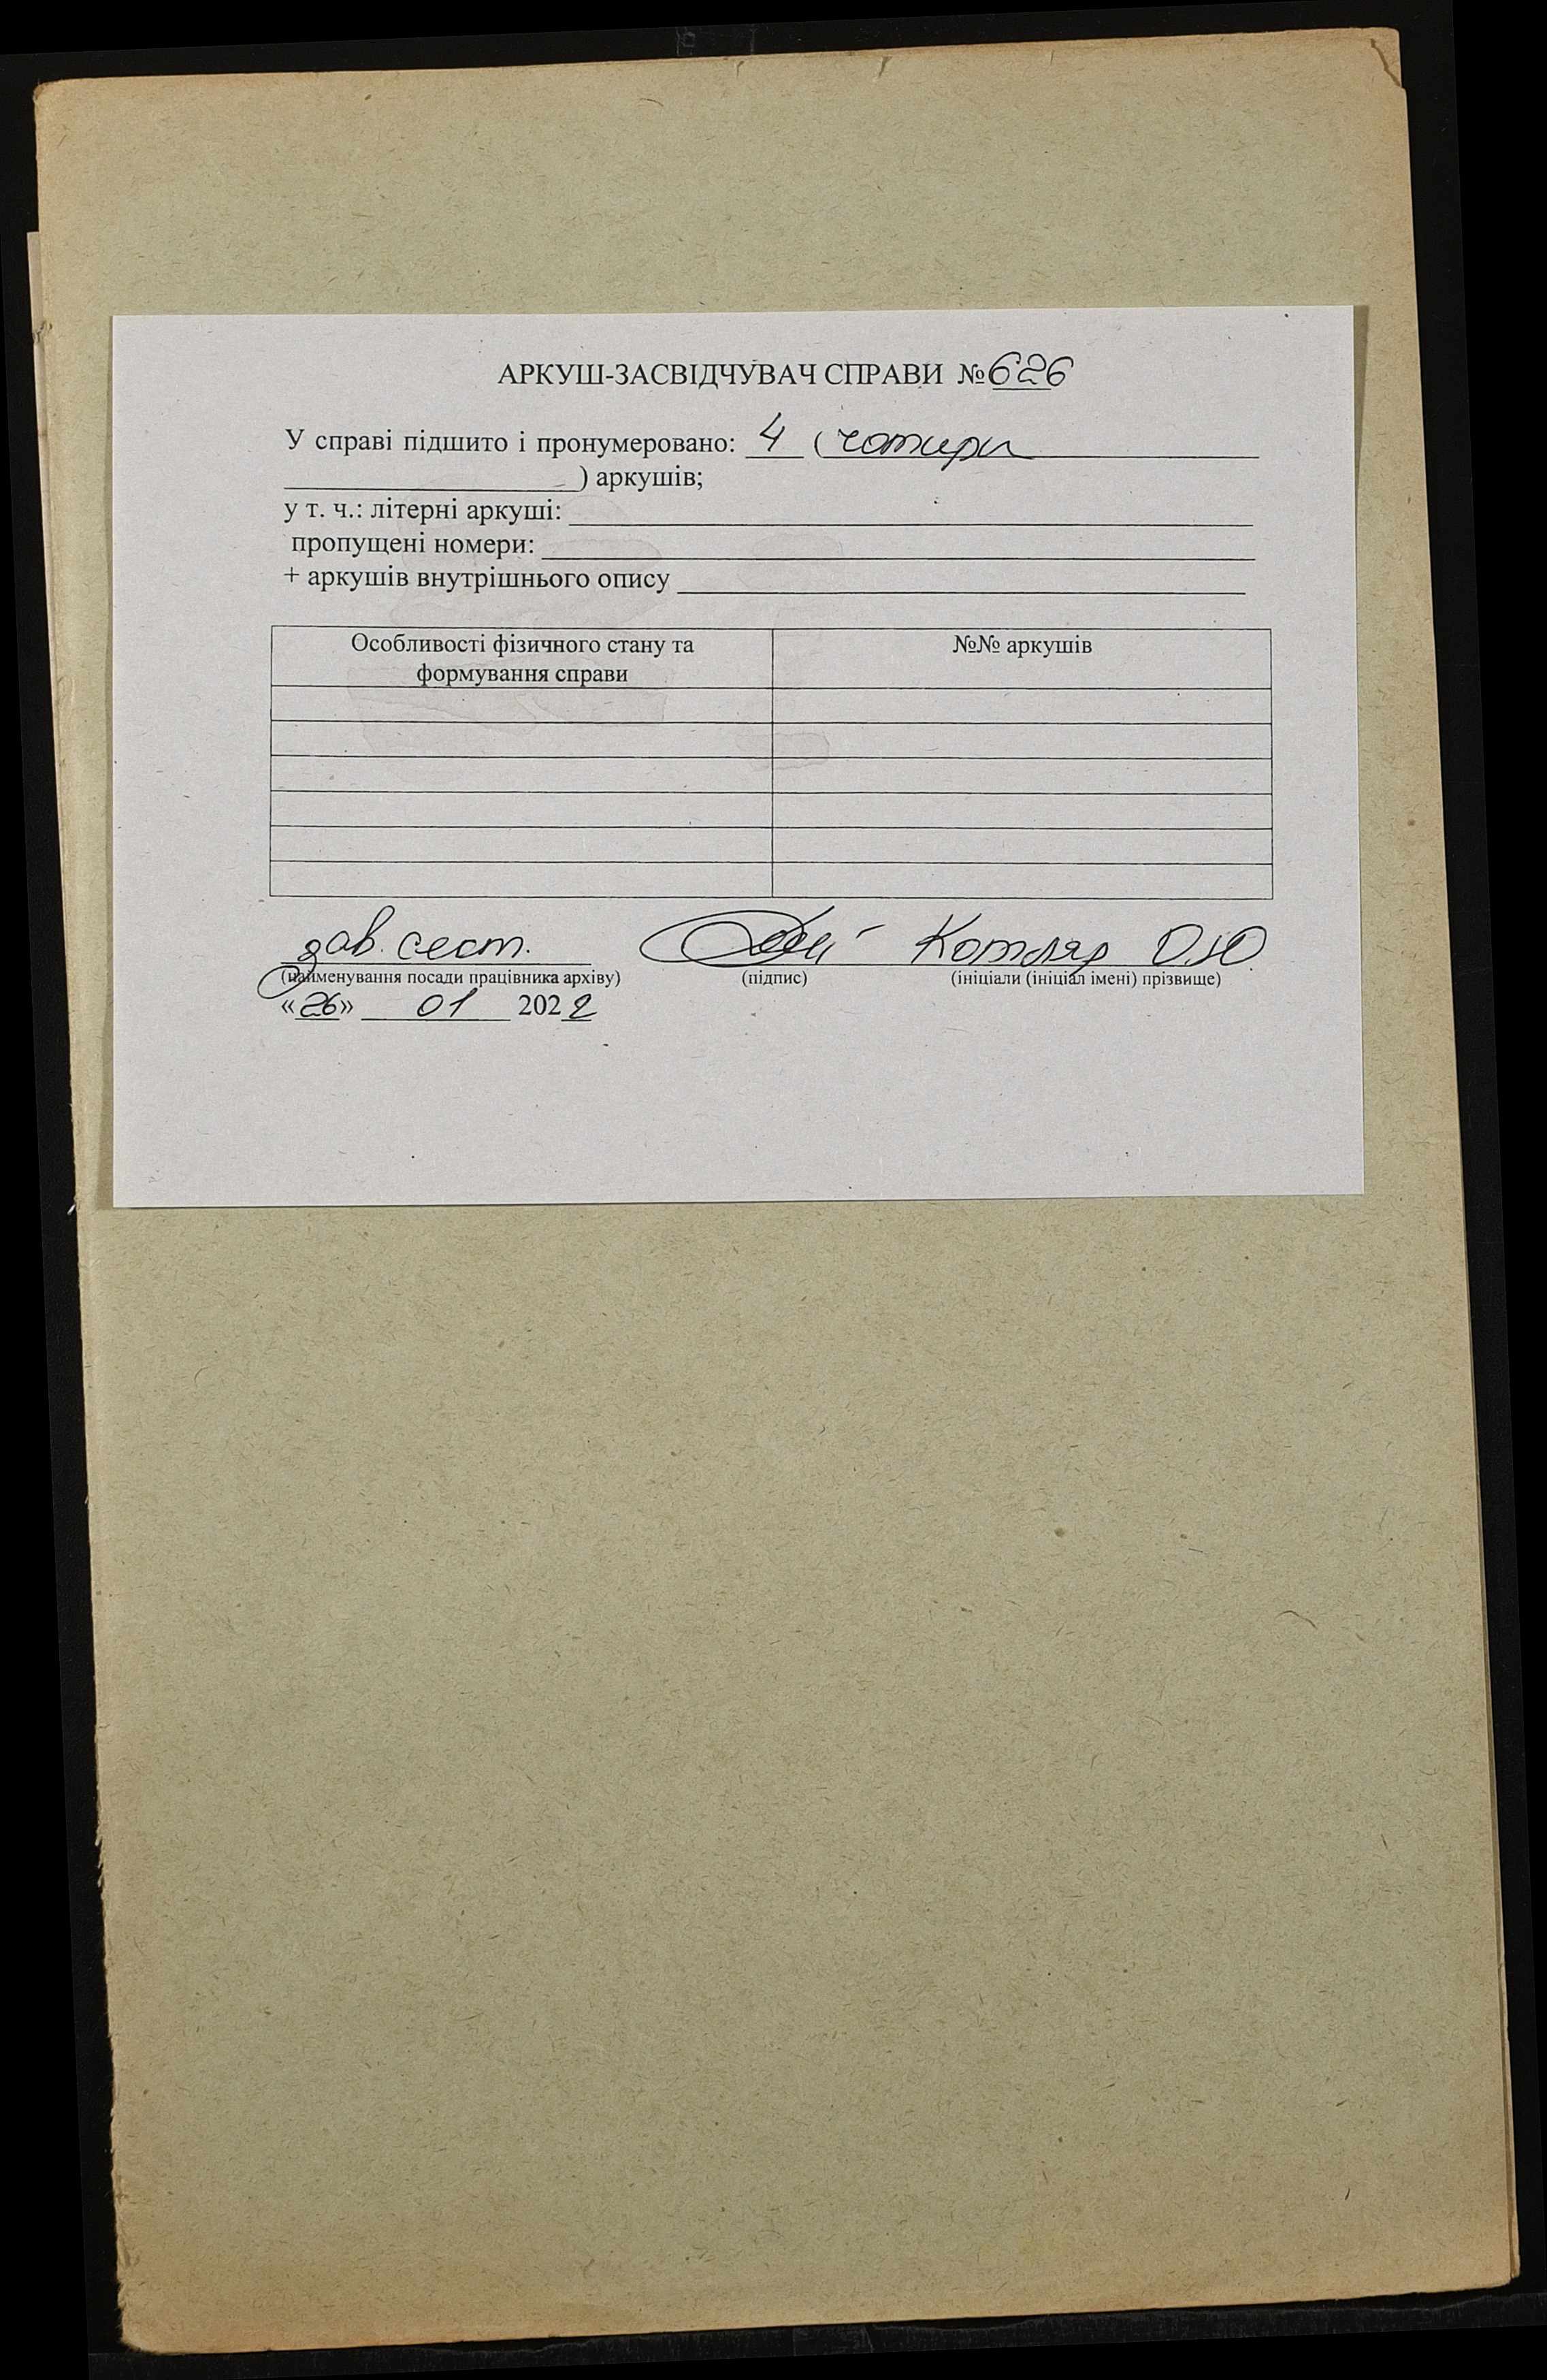 АРКУШ-ЗАСВІДЧУВАЧ СПРАВИ № 626
У справі підшито і пронумеровано: 4 (чотири
) аркушів;
у т. ч.: літерні аркуші:
пропущені номери:
+ аркушів внутрішнього опису
Особливості фізичного стану та формування справи
№№ аркушів
зав. сект. Котляр О.Ю.
(найменування посади працівника архіву) (підпис) (ініціали (ініціал імені) прізвище)
«26» 01 2022